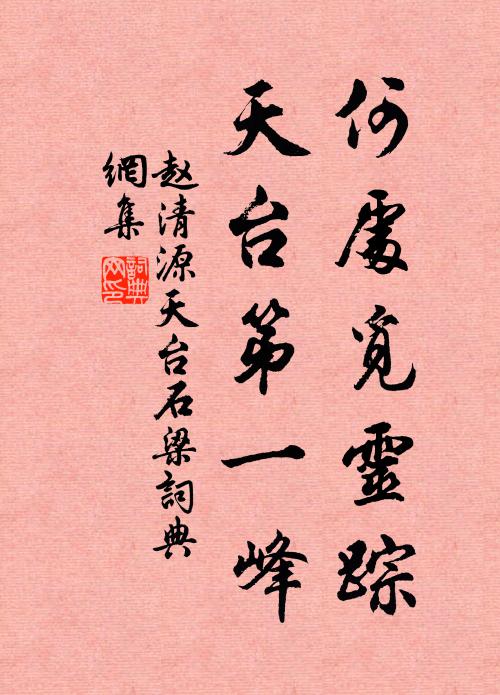 何處覓靈踪
天台第一峰
赵清源天台石梁詞典
網集
詞典
网印